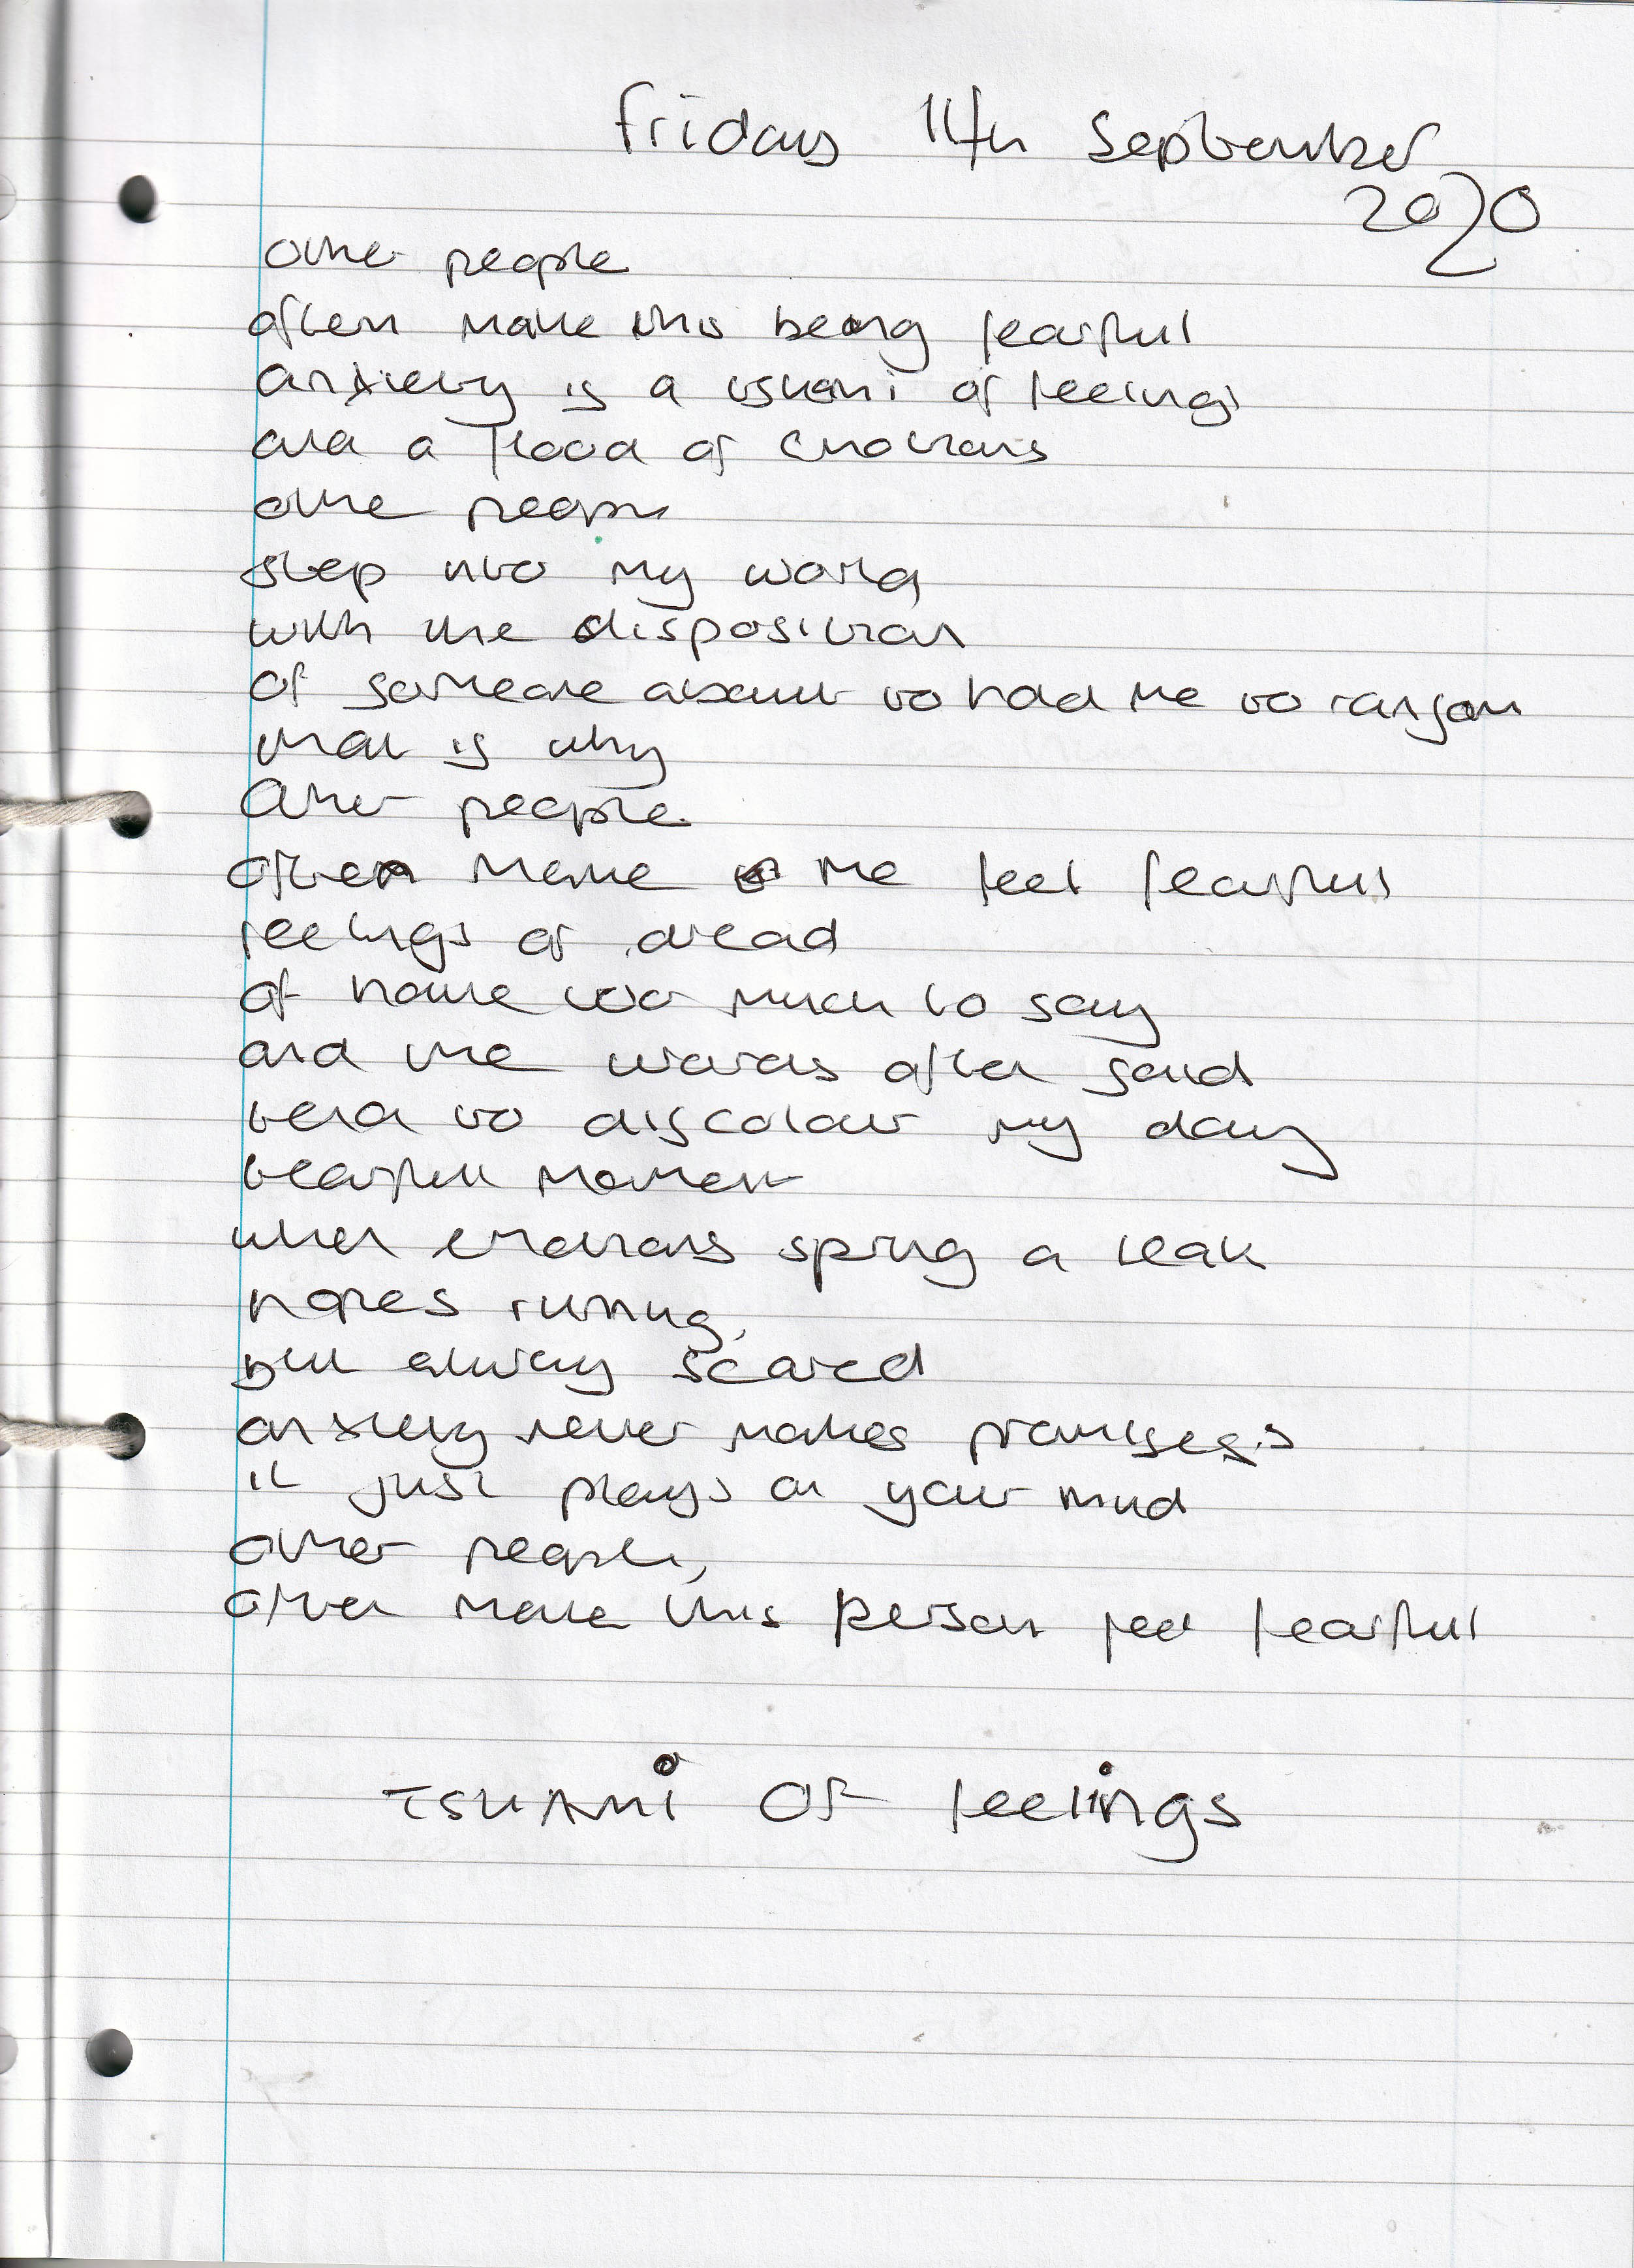 Friday 11th September
2020
other people
often make this being fearful
anxiety is a tsunami of feelings
and a flood of emotions
other people
step into my world
with the disposition
of someone about to hold me to ransom
that is why
other people
often make me feel fearful
feelings of dread
of have too much to say
and the words often said
tend to discolour my day
tearful moment
when emotions spring a leak
noses running,
but always scared
anxiety never makes promises
it just plays on your mind
other people,
often make this person feel fearful
TSUNAMi OF feelings